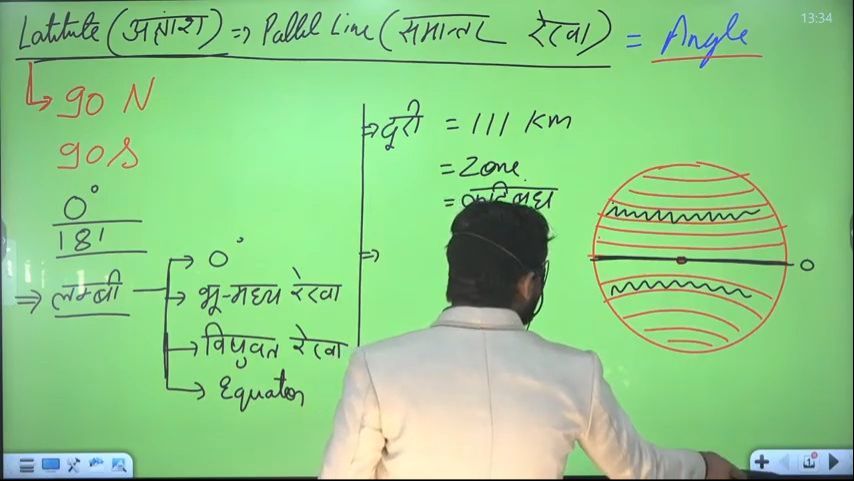 Latitute (अक्षांश) ⇒ Pallel Line (समान्तर रेखा) = Angle
13:34
90 N
90 S
0°
181
⇒ लम्बी
→ 0°
→ भू-मध्य रेखा
→ विषुवत रेखा
→ Equator
⇒ दूरी = 111 KM
= Zone
= कटिबंध
⇒
0